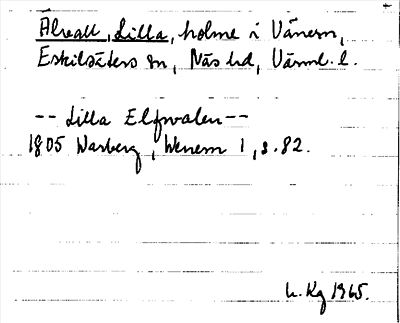 Älvall, Lilla, holme i Vänern,
Eskilsäters sn, Näs hd, Värml. l.
-- Lilla Elfwalen --
1805 Warberg, Wenern 1, s. 82.
L. Kg 1965.